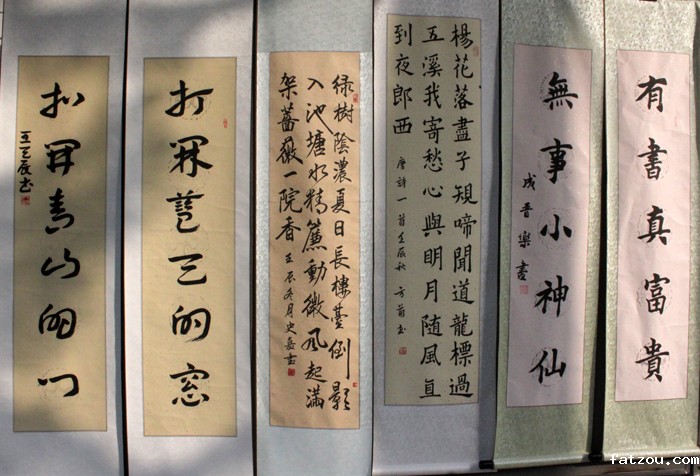 有書真富貴
無事小神仙
晋樂書
楊花落盡子規啼聞道龍標過
五溪我寄愁心與明月随風直
到夜郎西
唐詩一首壬辰秋
绿樹陰濃夏日長樓臺倒影
入池塘水精簾動微风起满
架薔薇一院香
壬辰冬月史
打開蓝天的窓
扣開青山的门
fatzou.com